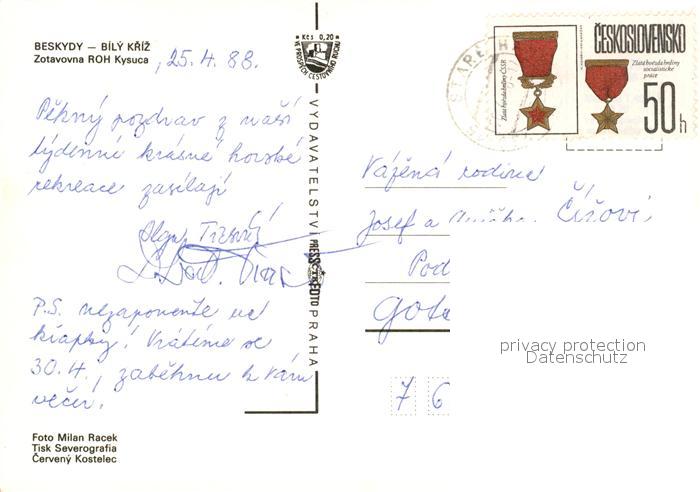 BESKYDY — BÍLÝ KŘÍŽ
Zotavovna ROH Kysuca
, 25. 4. 88.
Kčs 0,20
VE PROSPĚCH CESTOVNÍHO RUCHU
ČESKOSLOVENSKO
Zlatá hvězda hrdiny ČSSR
Zlatá hvězda hrdiny
socialistické
práce
50 h
STARÉ H
Pěkný pozdrav z naší
týdenní krásné horské
rekreace zasílají
Olga
P.S. nezapomeňte
Vrátíme se
30.4., zaběhnu k Vám
večer.
VYDAVATELSTVÍ PRESSFOTO PRAHA
ČTK
Vážená rodina
Josef a Čížovi
Pod
Got
7 6
privacy protection
Datenschutz
Foto Milan Racek
Tisk Severografia
Červený Kostelec